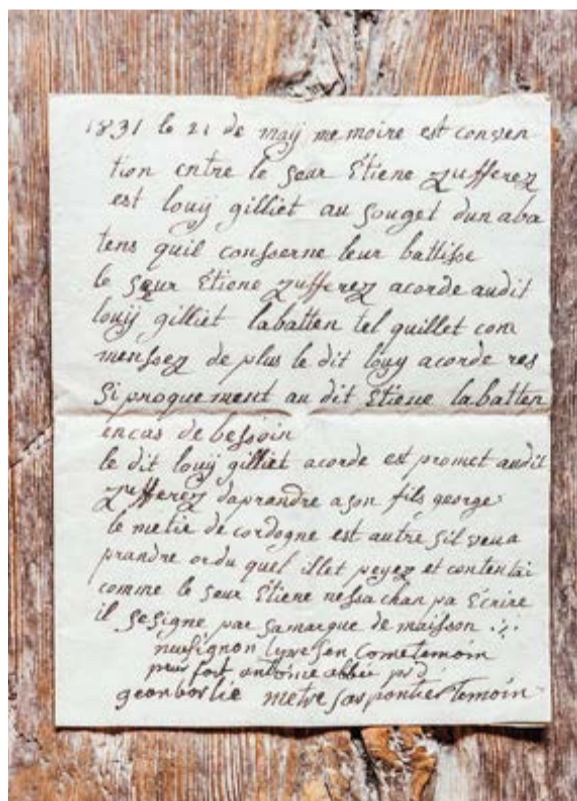 1831 le 21 de maÿ me moire est conven
tion entre le seur Etiene zufferez
est louÿ gilliet au souget dun aba
tens quil conserne leur battisse
le seur Etione zufferez acorde audit
louÿ gilliet labatten tel quillet com
mensez de plus le dit louy acorde res
siproquement au dit Etiene labatten
encas de besoin
le dit louÿ gilliet acorde est promet audit
zufferez daprandre a son fils george
le metie de cordogne est autre sil veu a
prandre or du quel illet peyez et contentai
comme le seur Etiene nessachan pa Ecrire
il sesigne par samarque de maisson
come temoin
antoinie
metre temoin